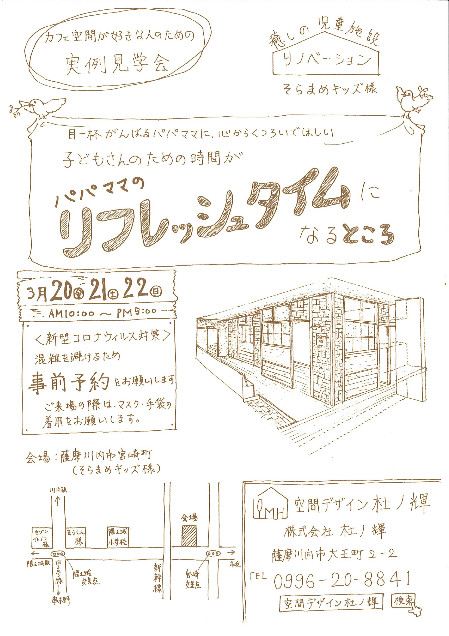 カフェ空間が好きな人のための
実例見学会
癒しの児童施設
リノベーション
そらまめキッズ様
目一杯がんばるパパママに、心からくつろいでほしい
子どもさんのための時間が
パパママの
リフレッシュタイムに
なるところ
3月20金・21土・22日
AM10:00～PM5:00
〈新型コロナウィルス対策〉
混雑を避けるため
事前予約をお願いします
ご来場の際は、マスク・手袋の
着用をお願いします。
会場:薩摩川内市宮崎町
(そらまめキッズ様)
会場
新幹線
宮崎
交差点
空間デザイン杜ノ輝
株式会社 杜ノ輝
薩摩川内市大王町2-2
TEL 0996-20-8841
空間デザイン杜ノ輝 検索